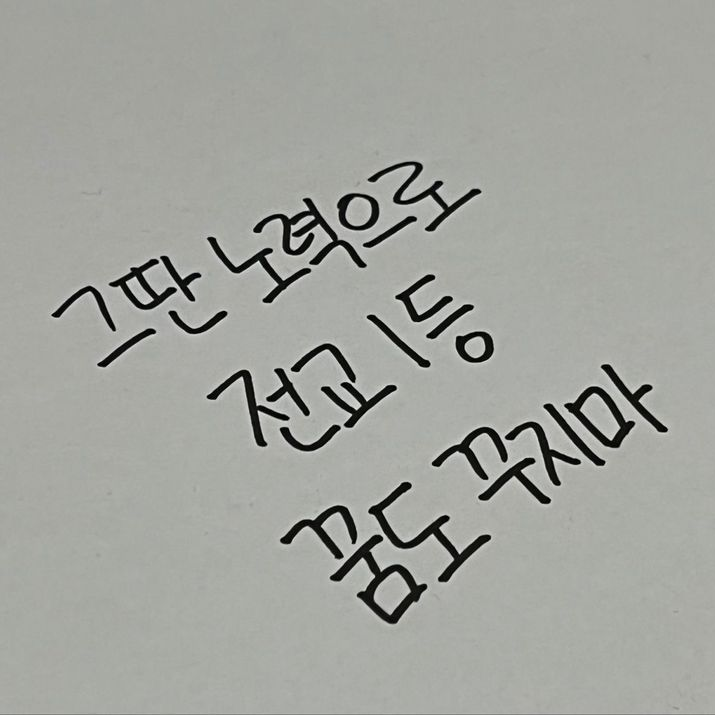 그딴 노력으로
전교 1등
꿈도 꾸지마